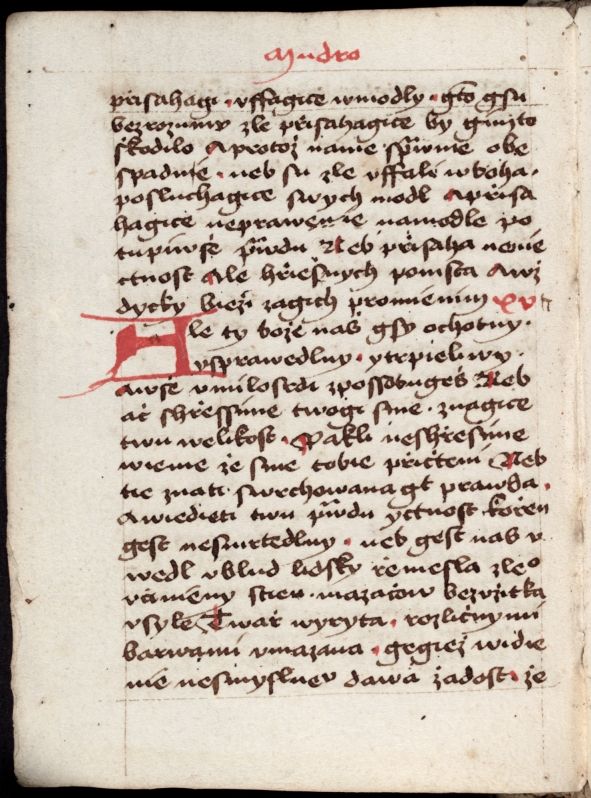 Mudro
přisahagi · vffagice wmodly · gto gsu
bezrozumy zle přisahagice by gimto
sskodilo A protoz namie sprwnie obe
spadnie · neb su zle vffali wboha ·
posluchagice swych modl Apřisa
hagice neprawenie namodle po
tupiwsse prwdu Neb přisaha nenie
ctnost Ale hřiessnych pomsta Awz
dycky biezi zagich promieninu xv
Ale ty boze nas gsy ochotny ·
ysprawedlny · ytrpieliwy ·
awsse vmilosrdi zpossobugess Neb
ač shřessime twogi sme · znagice
twu welikost · Pakli neshřesime
wieme ze sme tobie přičteni Neb
tie znati swrchowana gt prawda ·
Awiedieti twu prwdu yctnost kořen
gest nesmrtedlny · neb gest nas v
wedl vblud lidsky řemesla zleo
vcimeny stien · mazatow bezvzitka
vsyle Twař wyryta · rozličnymi
barwami vmazana · gegiez widie
nie nesmyslnev dawa zadost · ze